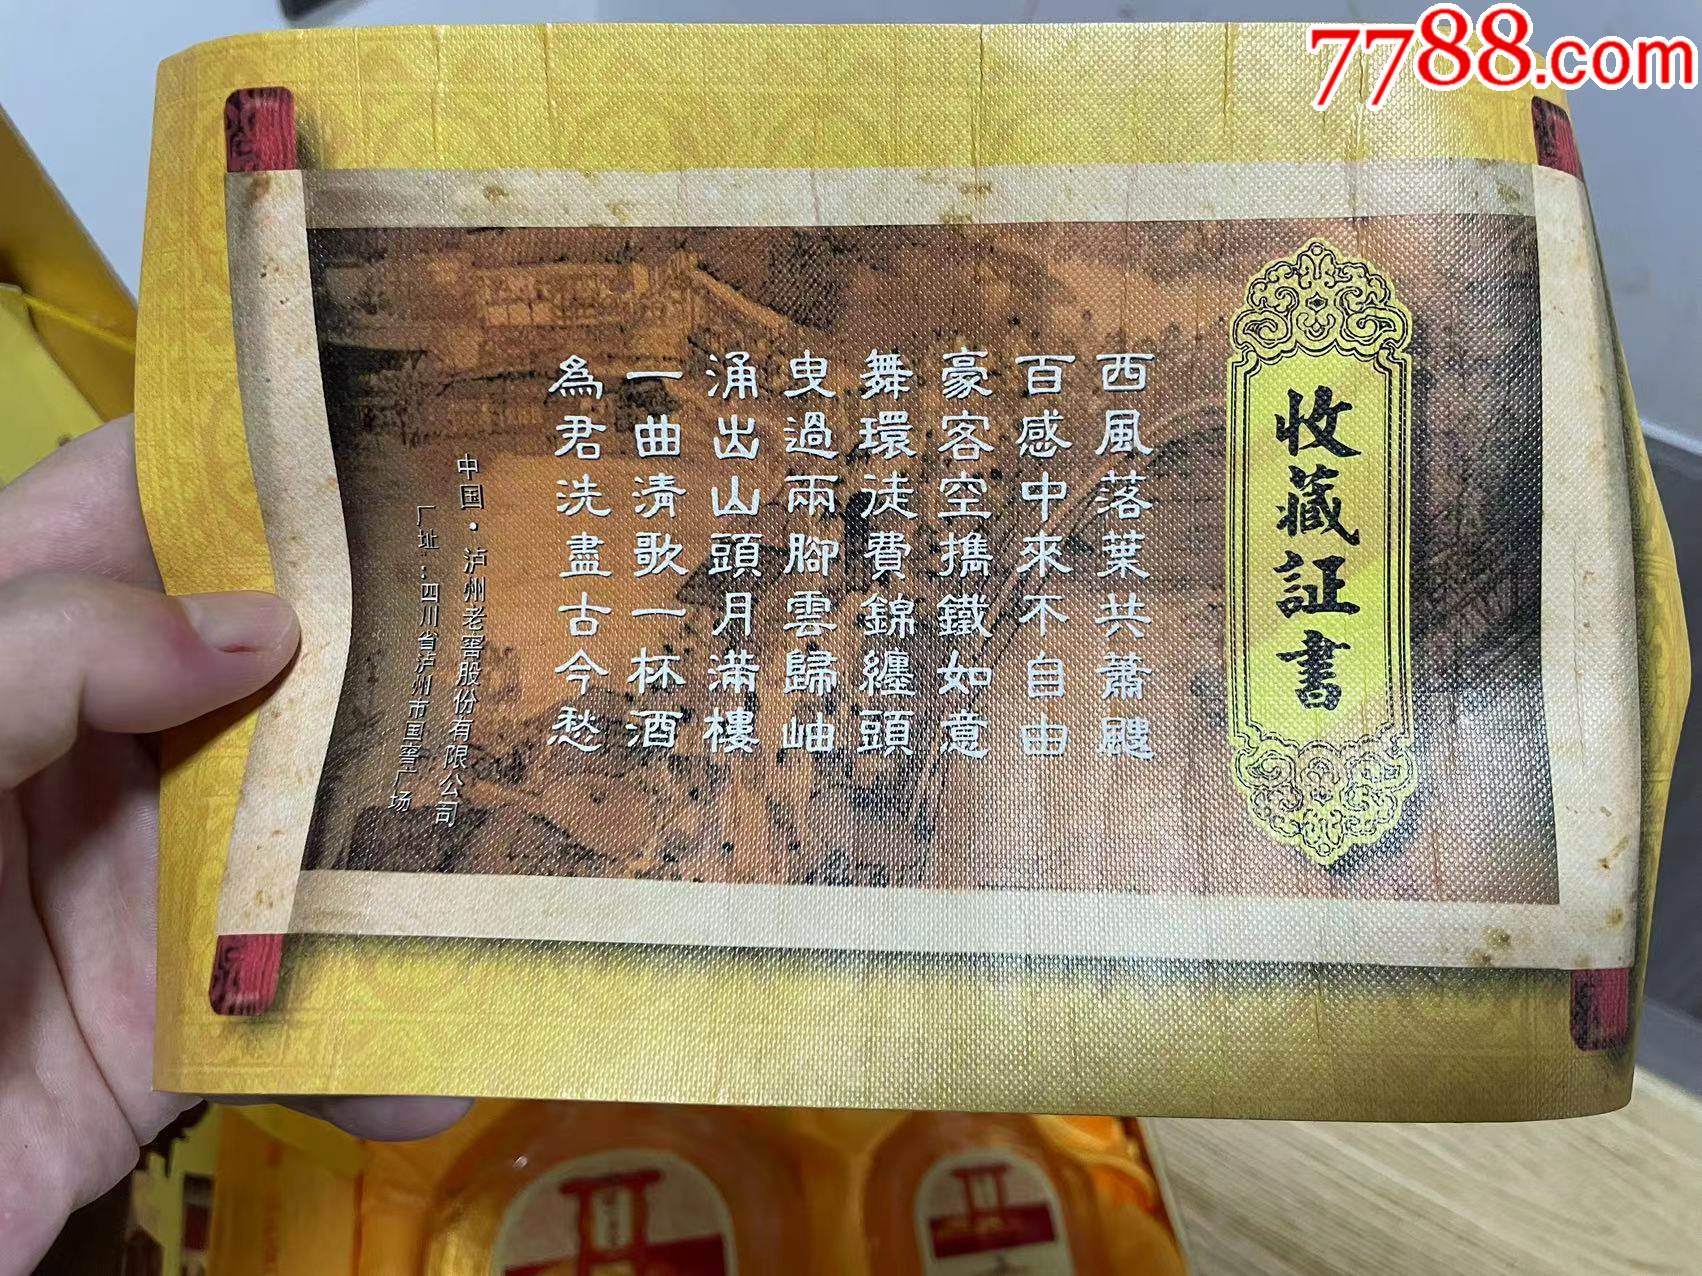 7788.com
收藏証書
西風落葉共蕭颼
百感中來不自由
豪客空擕鐵如意
舞環徒費錦纏頭
曳過兩腳雲歸岫
涌出山頭月滿樓
一曲清歌一杯酒
為君洗盡古今愁
中国·泸州老窖股份有限公司
厂址:四川省泸州市国窖广场